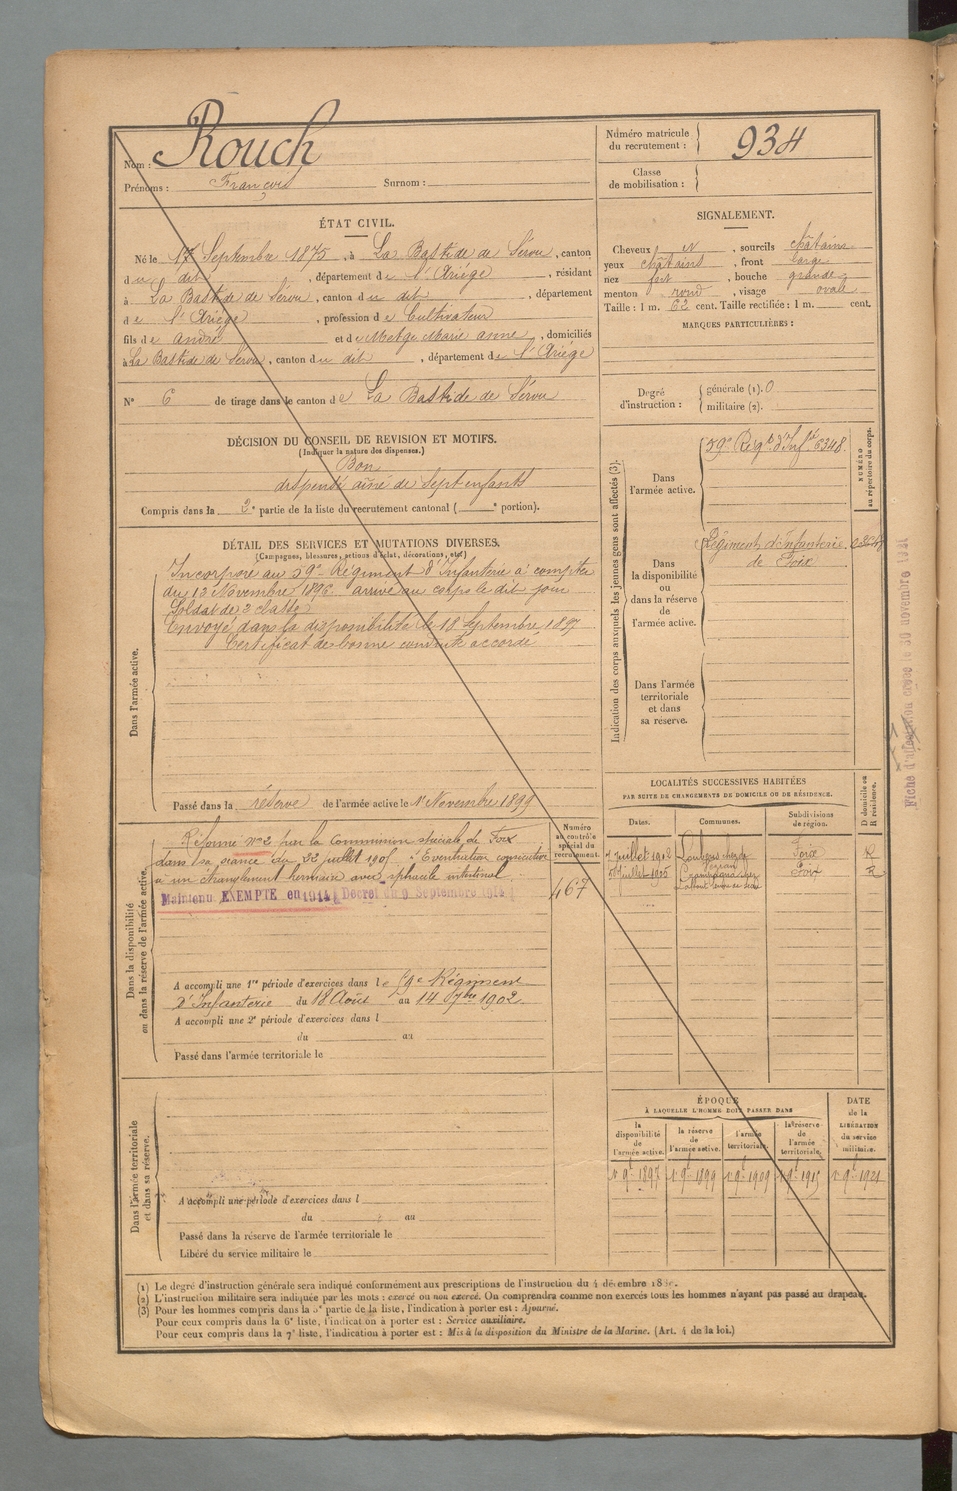 Nom : Rouch
Prénoms : François Surnom :
Numéro matricule du recrutement : 934
Classe de mobilisation :
ÉTAT CIVIL.
Né le 17 Septembre 1875, à La Bastide de Sérou, canton
du dit, département de l'Ariège, résidant
à La Bastide de Sérou, canton du dit, département
de l'Ariège, profession de Cultivateur
fils de André et de Metge Marie anne, domiciliés
à La Bastide de Sérou, canton du dit, département de l'Ariège
N° 6 de tirage dans le canton de La Bastide de Sérou
SIGNALEMENT.
Cheveux et, sourcils châtains
yeux châtains, front large
nez fort, bouche grande
menton rond, visage ovale
Taille : 1 m. 62 cent. Taille rectifiée : 1 m. cent.
MARQUES PARTICULIÈRES :
Degré d'instruction : générale (1). 0
militaire (2).
DÉCISION DU CONSEIL DE REVISION ET MOTIFS.
(Indiquer la nature des dispenses.)
Bon
dispensé aîné de sept enfants
Compris dans la 2e partie de la liste du recrutement cantonal ( e portion).
DÉTAIL DES SERVICES ET MUTATIONS DIVERSES.
(Campagnes, blessures, actions d'éclat, décorations, etc.)
Dans l'armée active.
Incorporé au 59e Régiment d'Infanterie à compter
du 13 Novembre 1896 arrivé au corps le dit jour
Soldat de 2 classe
Envoyé dans la disponibilité le 18 Septembre 1897
Certificat de bonne conduite accordé
Passé dans la réserve de l'armée active le 1er Novembre 1899
Indication des corps auxquels les jeunes gens sont affectés (3).
NUMÉRO au répertoire du corps.
Dans l'armée active.
59e Régt d'Infie 6348
Dans la disponibilité ou dans la réserve de l'armée active.
Régiment d'Infanterie
de Foix
Dans l'armée territoriale et dans sa réserve.
Fiche d'affectation créée le 30 novembre
Dans la disponibilité ou dans la réserve de l'armée active.
Numéro au contrôle spécial du recrutement.
467
Réformé n°2 par la Commission spéciale de Foix
dans sa séance du 22 juillet 1905 : Eventration consécutive
à un étranglement herniaire avec sphacèle intestinal
Maintenu EXEMPTE en 1914 (Décret du 9 Septembre 1914)
A accompli une 1re période d'exercices dans le 59e Régiment
d'Infanterie du 18 Août au 14 7bre 1902
A accompli une 2e période d'exercices dans l
du au
Passé dans l'armée territoriale le
LOCALITÉS SUCCESSIVES HABITÉES
PAR SUITE DE CHANGEMENTS DE DOMICILE OU DE RÉSIDENCE.
D domicile ou R résidence.
Dates. Communes. Subdivisions de région.
7 juillet 1902 Foix R
juillet 1905 Foix R
Dans l'armée territoriale et dans sa réserve.
A accompli une période d'exercices dans l
du au
Passé dans la réserve de l'armée territoriale le
Libéré du service militaire le
ÉPOQUE
À LAQUELLE L'HOMME DOIT PASSER DANS
DATE de la LIBÉRATION du service militaire.
la disponibilité de l'armée active. la réserve de l'armée active. l'armée territoriale. la réserve de l'armée territoriale.
1897 1899 1909 1915 1921
(1) Le degré d'instruction générale sera indiqué conformément aux prescriptions de l'instruction du 4 décembre 18
(2) L'instruction militaire sera indiquée par les mots : exercé ou non exercé. On comprendra comme non exercés tous les hommes n'ayant pas passé au drapeau.
(3) Pour les hommes compris dans la 5e partie de la liste, l'indication à porter est : Ajourné.
Pour ceux compris dans la 6e liste, l'indication à porter est : Service auxiliaire.
Pour ceux compris dans la 7e liste, l'indication à porter est : Mis à la disposition du Ministre de la Marine. (Art. 4 de la loi.)